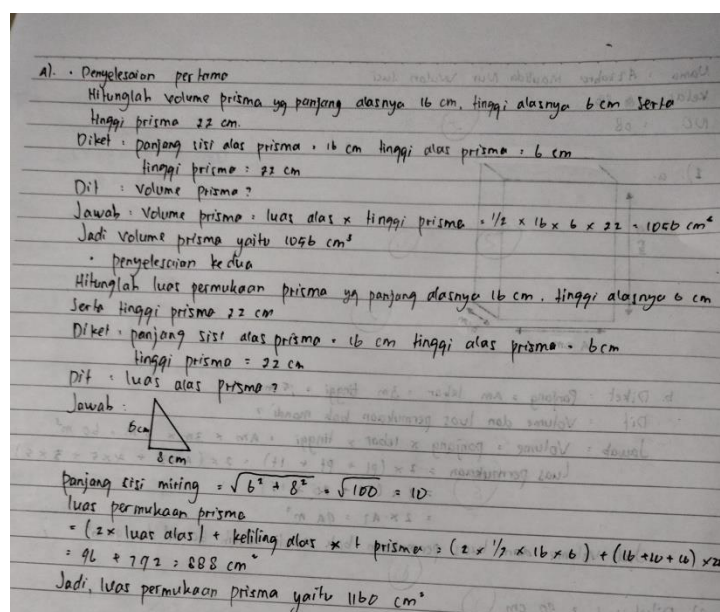 A). • Penyelesaian pertama
Hitunglah volume prisma yg panjang alasnya 16 cm, tinggi alasnya 6 cm serta
tinggi prisma 22 cm.
Diket : panjang sisi alas prisma = 16 cm tinggi alas prisma = 6 cm
tinggi prisma = 22 cm
Dit : Volume prisma ?
Jawab : Volume prisma = luas alas x tinggi prisma = 1/2 x 16 x 6 x 22 = 1056 cm²
Jadi volume prisma yaitu 1056 cm³
• penyelesaian kedua
Hitunglah luas permukaan prisma yg panjang alasnya 16 cm, tinggi alasnya 6 cm
serta tinggi prisma 22 cm
Diket : panjang sisi alas prisma = 16 cm tinggi alas prisma = 6 cm
tinggi prisma = 22 cm
Dit : luas alas prisma ?
Jawab :
6 cm
8 cm
panjang sisi miring = √6² + 8² = √100 = 10
luas permukaan prisma
= (2x luas alas) + keliling alas x t prisma = (2 x 1/2 x 16 x 6) + (16 +10 + 10) x 22
= 96 + 792 = 888 cm²
Jadi, luas permukaan prisma yaitu 1160 cm²